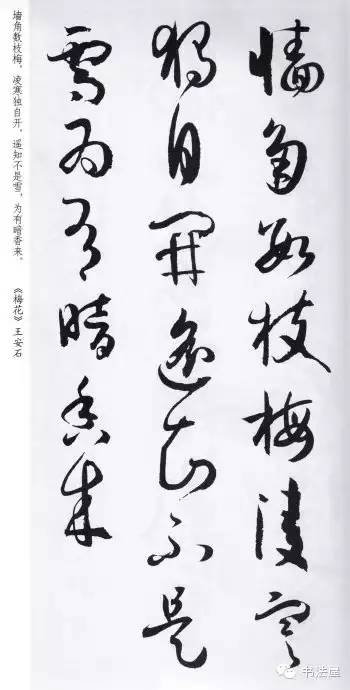 墙角数枝梅凌寒
独自开遥知不是
雪为有暗香来
墙角数枝梅，凌寒独自开，遥知不是雪，为有暗香来。
《梅花》王安石
书法屋